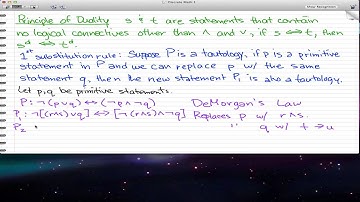 Discrete Math 1
Principle of Duality s & t are statements that contain
no logical connectives other than ∧ and ∨, if s ⇔ t, then
sᵈ ⇔ tᵈ.
1ˢᵗ substitution rule: Suppose P is a tautology, if p is a primitive
statement in P and we can replace p w/ the same
statement q, then be new statement P₁ is also a tautology.
Let p,q be primitive statements.
P: ¬(p∨q) ⇔ (¬p∧¬q) DeMorgan's Law
P₁: ¬[(r∧s)∨q] ⇔ [¬(r∧s)∧¬q] Replaces p w/ r∧s.
P₂ " q w/ t→u